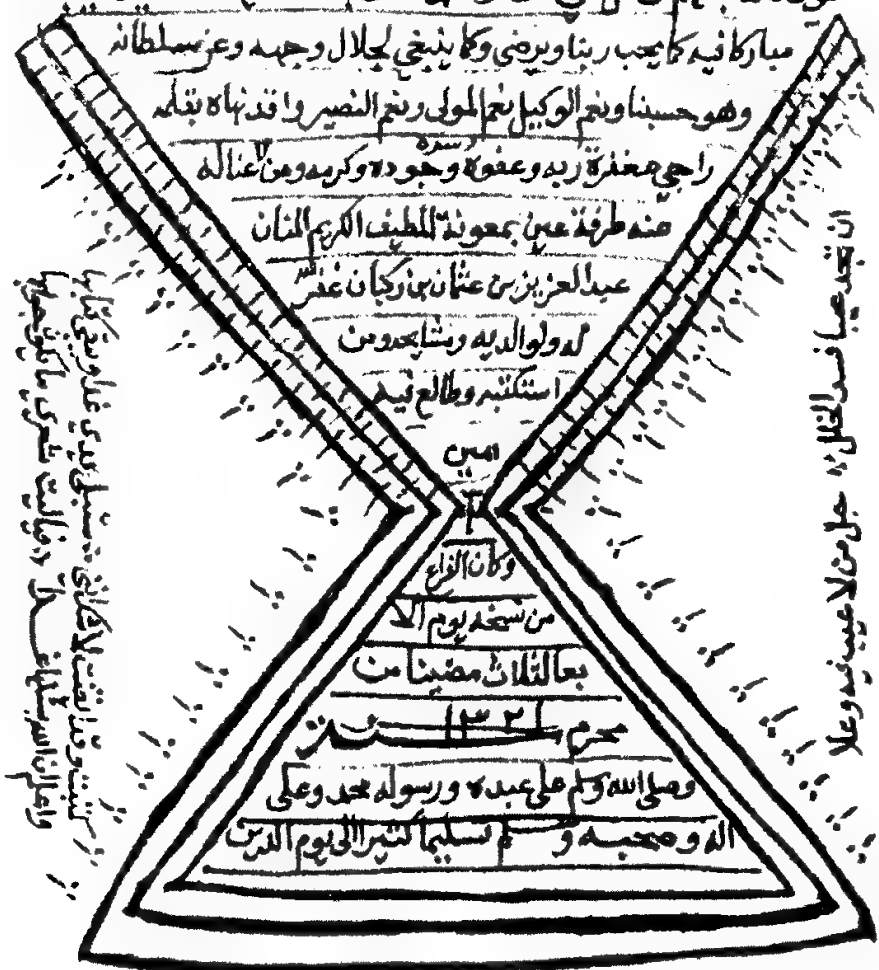 مباركا فيه كما يحب ربنا ويرضى وكما ينبغي لجلال وجهه وعز سلطانه
وهو حسبنا ونعم الوكيل نعم المولى ونعم النصير وا قد نهاه بقلمه
راجي مغفرة ربه وعفوه وجوده وكرمه ومن لا غنا له
عنه طرفة عين بمعونة اللطيف الكريم المنان
عبد العزيز بن عثمان بن ركبان غفر الله
له ولوالديه ومشايخه ومن
استكتبه وطالع فيه
امين
وكان الفراغ
من نسخه يوم الا
بعا لثلاث مضينا من
محرم سنة ١٣٢١
وصلى الله وسلم على عبده ورسوله محمد وعلى
اله وصحبه وسلم تسليما كثيرا الى يوم الدين
ان تجد عيبا فسد الخللا جل من لا عيب فيه وعلا
كتبت وقد ايقنت لا شك انني ستبلى يدي غدا ويبقى كتابها
واعلم ان الله سائلها غدا فياليت شعري ما يكون جوابها